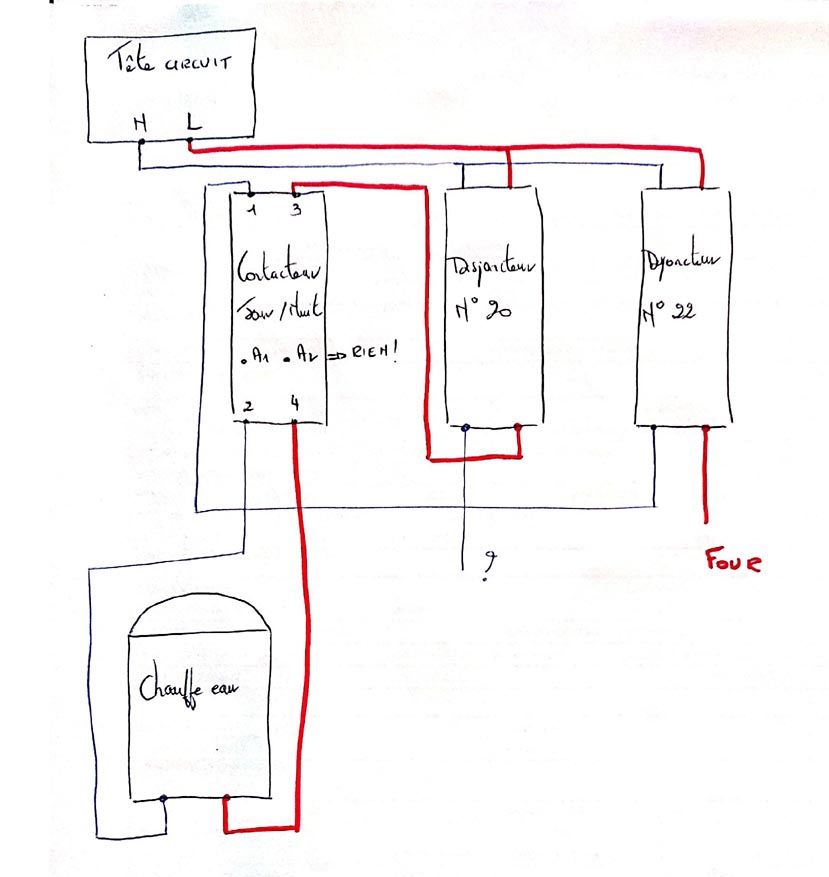 Tête CIRCUIT
N L
1 3
Contacteur
Jour/Nuit
. A1 . A2 => RIEN!
2 4
Disjoncteur
N° 20
Djoncteur
N° 22
?
FOUR
Chauffe eau